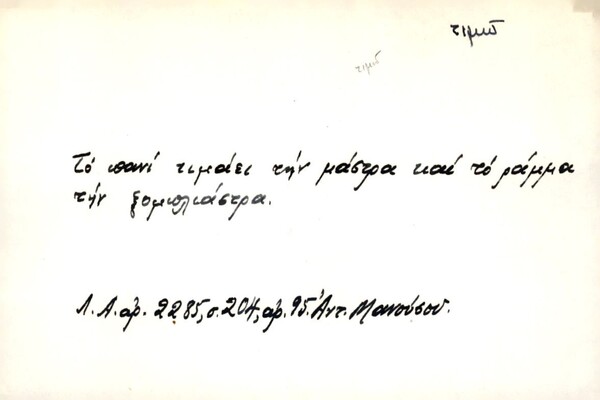 τιμῶ
τιμῶ
Τό πανί τιμάει τήν μάστρα καί τό ράμμα
τήν ξομπλιάστρα.
Λ. Α. ἀρ. 2285, σ. 204, ἀρ. 95. Ἀντ. Μανούσου.